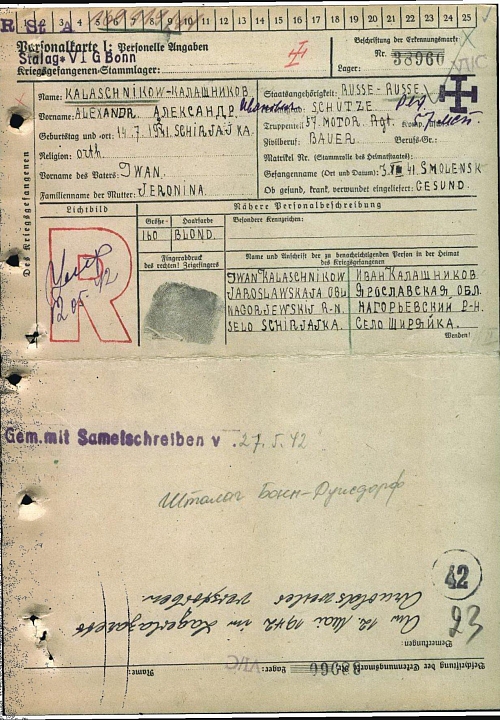 R St A
1 2 3 4 5 6 7 8 9 10 11 12 13 14 15 16 17 18 19 20 21 22 23 24 25
Personalkarte I: Personelle Angaben
Stalag VI G Bonn
Kriegsgefangenen-Stammlager:
Beschriftung der Erkennungsmarke
Nr. 38960
Lager: VI/C
Des Kriegsgefangenen
Name: KALASCHNIKOW-КАЛАШНИКОВ
Vorname: ALEXANDR. АЛЕКСАНДР.
Geburtstag und -ort: 14.7. SCHIRJAJKA.
Religion: orth
Vorname des Vaters: IWAN.
Familienname der Mutter: JERONINA.
Staatsangehörigkeit: RUSSE-RUSSE
SCHÜTZE
Truppenteil 57. MOTOR. Rgt. Komp.
Zivilberuf: BAUER. Berufs-Gr.:
Matrikel Nr. (Stammrolle des Heimatstaates):
Gefangennahme (Ort und Datum): 41. SMOLENSK
Ob gesund, krank, verwundet eingeliefert: GESUND.
Lichtbild
Nähere Personalbeschreibung
Größe Haarfarbe
160 BLOND.
Besondere Kennzeichen:
Fingerabdruck
des rechten! Zeigefingers
R
Name und Anschrift der zu benachrichtigenden Person in der Heimat
des Kriegsgefangenen
IWAN KALASCHNIKOW ИВАН КАЛАШНИКОВ
JAROSLAWSKAJA OBL ЯРОСЛАВСКАЯ ОБЛ.
NAGORJEWSKIJ R-N. НАГОРЬЕВСКИЙ Р-Н.
SELO SCHIRJAJKA. СЕЛО ШИРЯЙКА.
Wenden!
Gem. mit Samelschreiben v. 27.5.42
Шталаг Бонн-Дуисдорф
42
23
Bemerkungen:
Am 12 Mai 1942 im Lagerlazarett
Arnoldsweiler verstorben.
Beschriftung der Erkennungsmarke Nr. 38960 Lager: VI/C
Name: